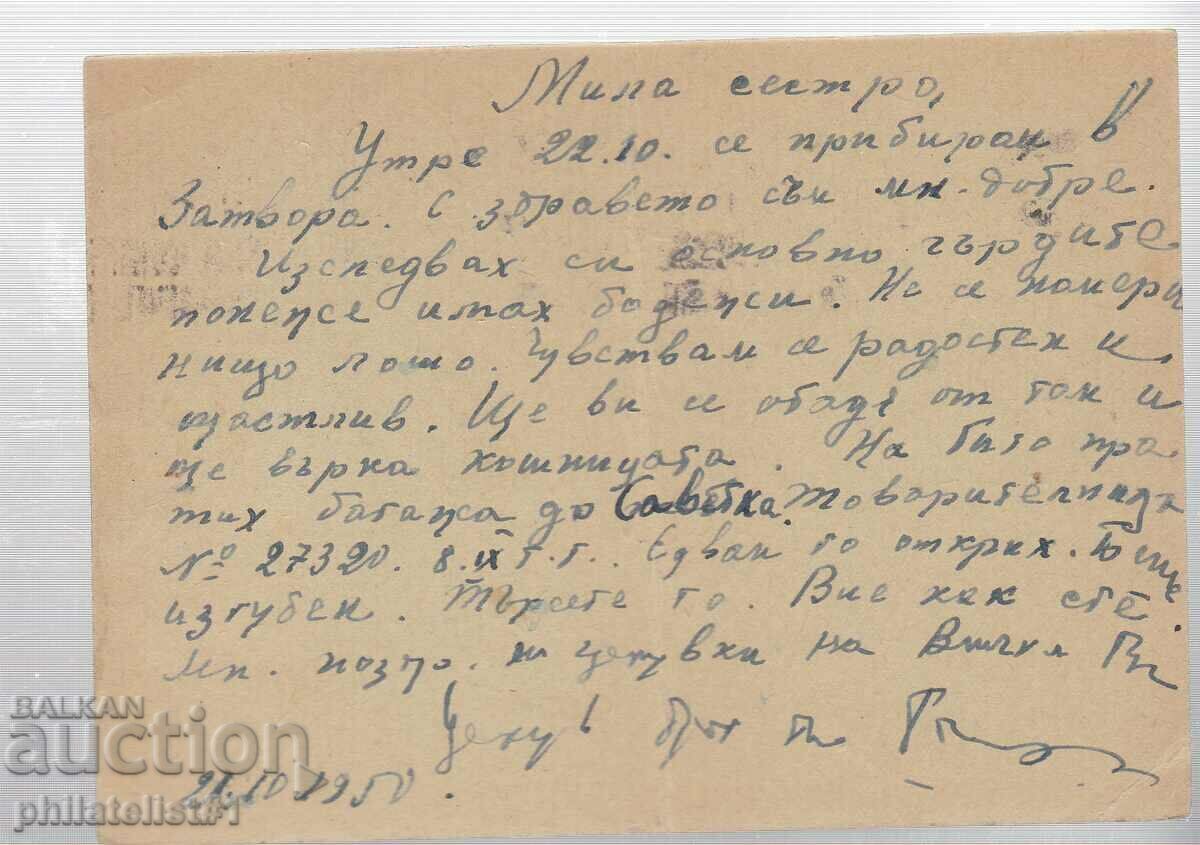 Мила сестро,
Утре 22.10. се прибирам в
Затвора. С здравето съм мн. добре.
Изследвах си основно гърдите
понеже имах бодежи. Не се намери
нищо лошо. Чувствам се радостен и
щастлив. Ще ви се обадя от там и
ще върна кошницата. На
тих багажа до Савètка. Товарителница
№ 27320. 8.IX т.г. Едвам го открих. Беше
изгубен. Търсете го. Вие как сте
Мн. поздр. и целувки на Всички
21.10.1950.
BALKAN
auction
philatelist#1